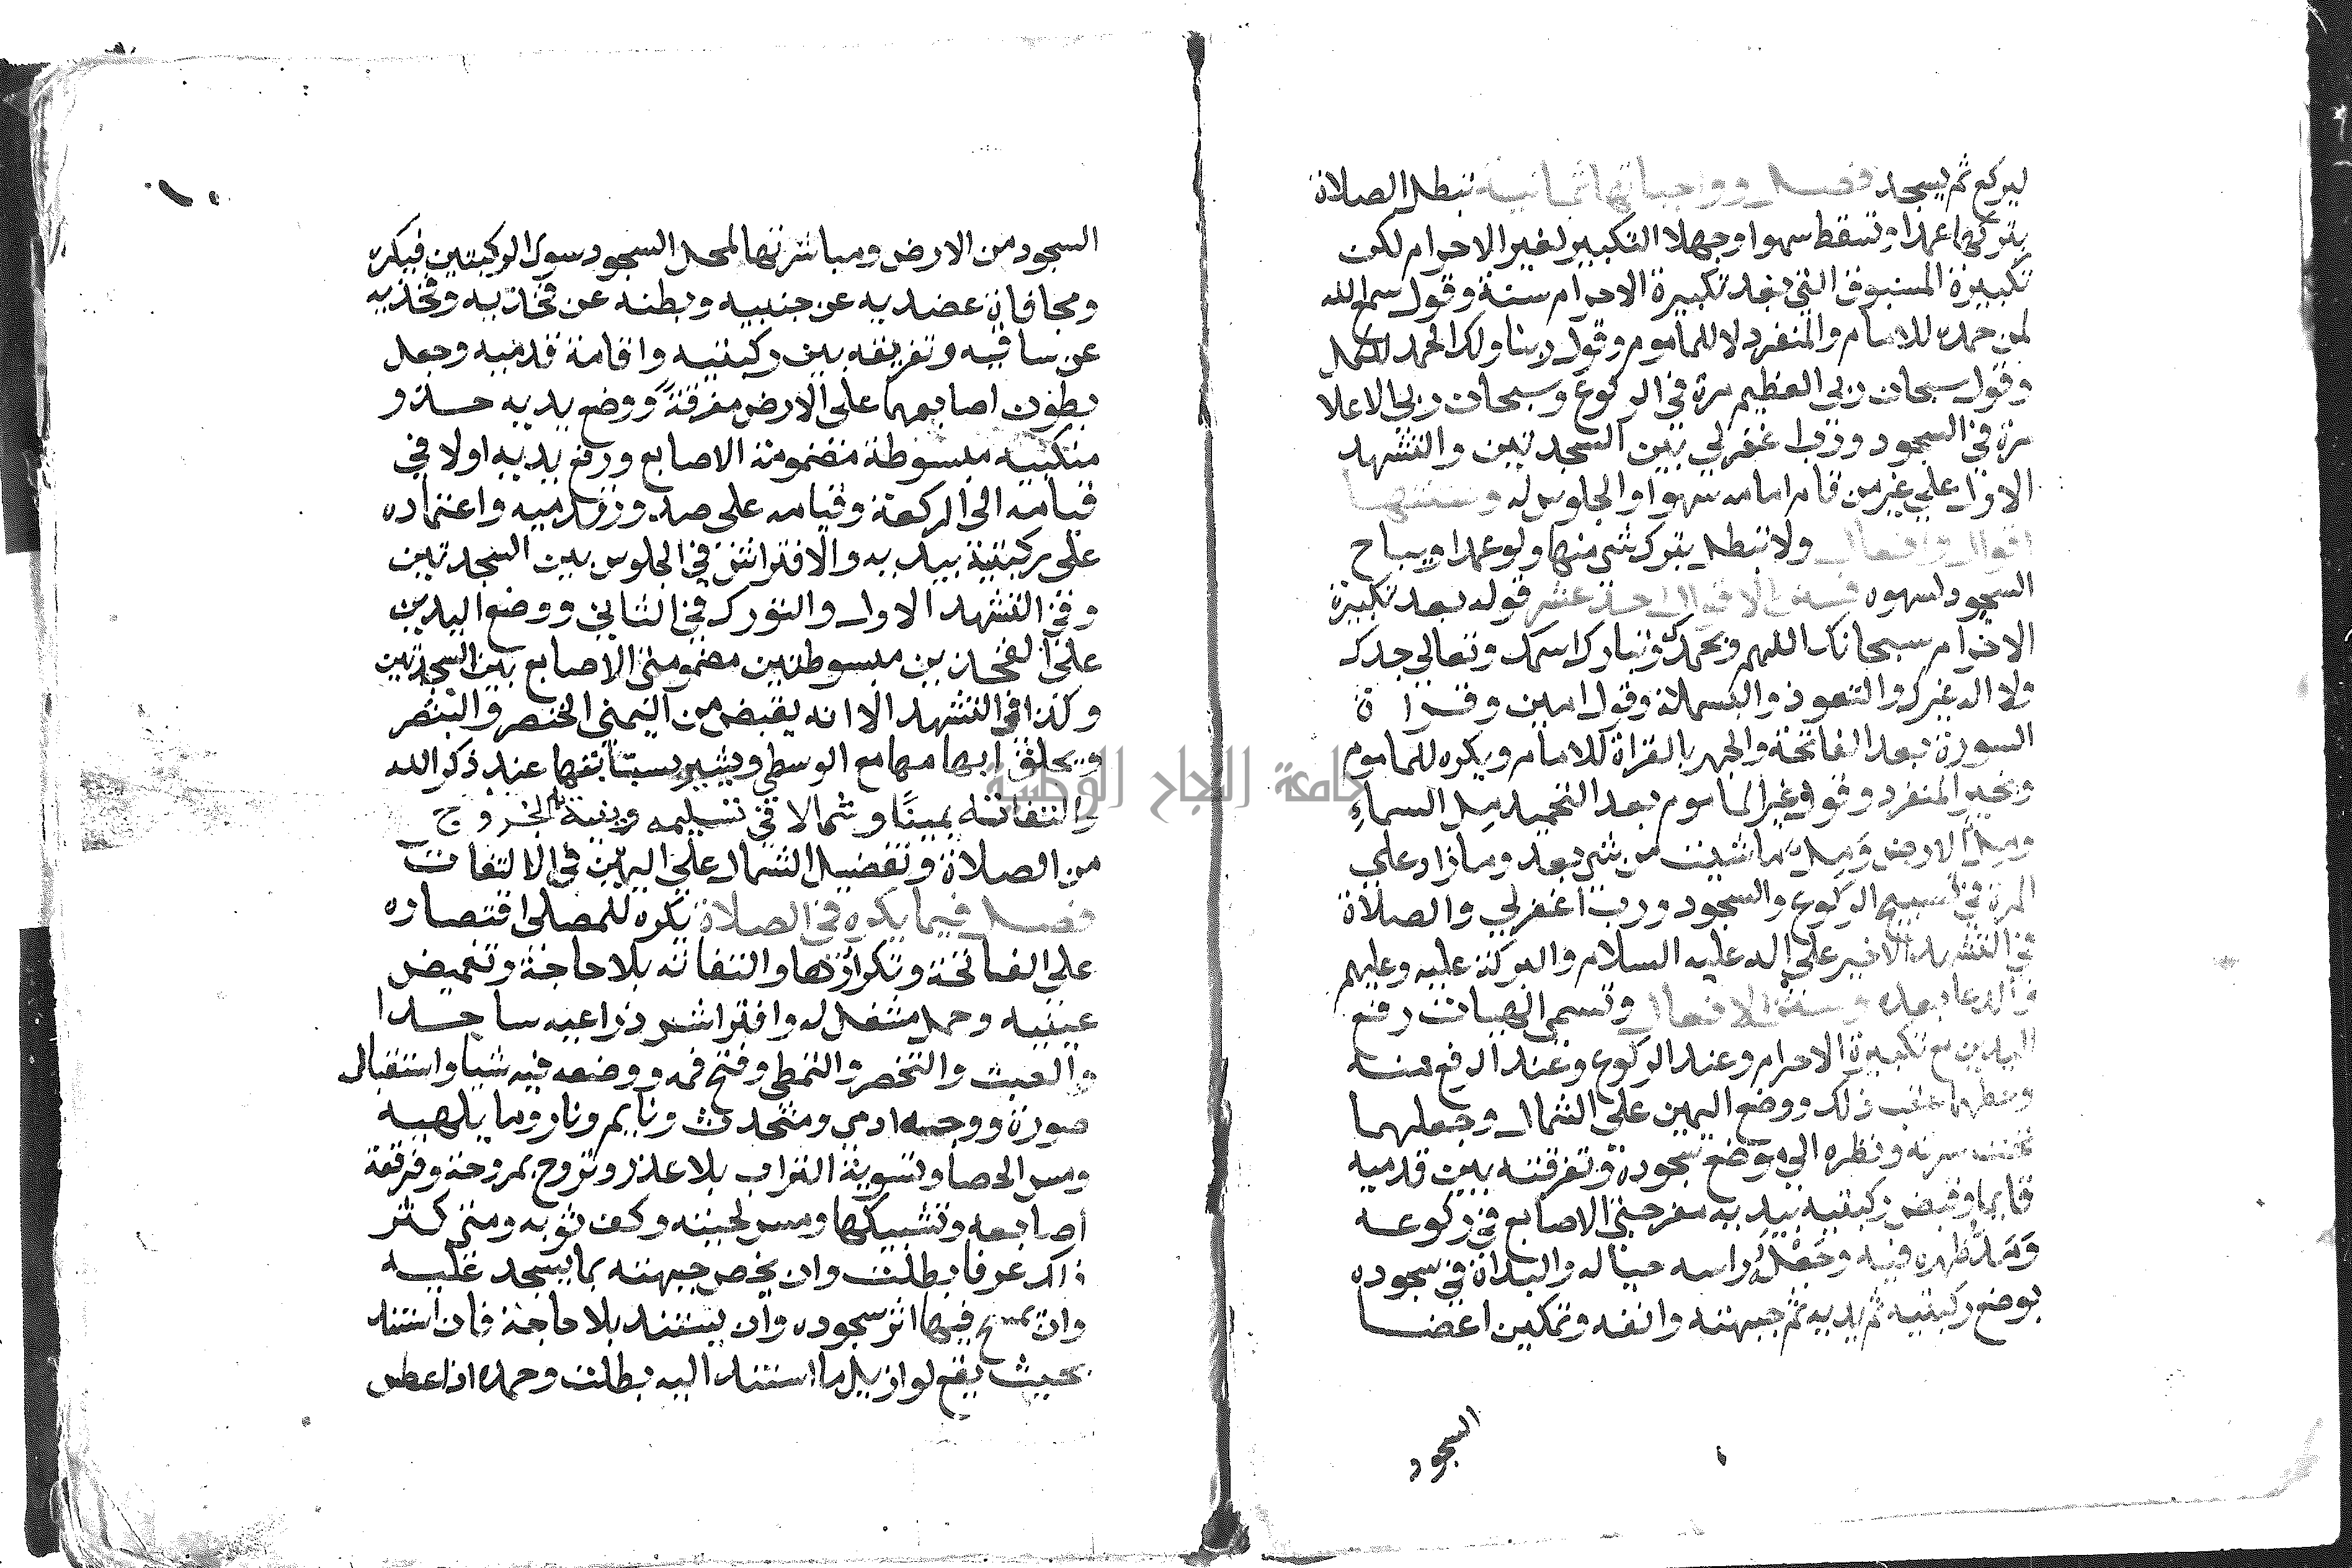 ليركع ثم يسجد فصل وواجباتها ثمانية تبطل الصلاة
بتركها عمدا وتسقط سهوا وجهلا التكبير لغير الاحرام لكن
تكبيرة المسبوق التي بعد تكبيرة الاحرام سنة وقول سمع الله
لمن حمده للامام والمنفرد لا للماموم وقول ربنا ولك الحمد للكل
وقول سبحان ربي العظيم مرة في الركوع وسبحان ربي الاعلا
مرة في السجود ورب اغفر لي بين السجدتين والتشهد
الاول على غير من قام امامه سهوا والجلوس له وسننها
اقوال وافعال ولا تبطل بترك شي منها ولو عمدا ويباح
السجود لسهوه فسنن الاقوال احد عشر قوله بعد تكبيرة
الاحرام سبحانك اللهم وبحمدك وتبارك اسمك وتعالى جدك
ولا اله غيرك والتعوذ والبسملة وقول امين وقراة
السورة بعد الفاتحة والجهر بالقراة للامام ويكره للماموم
ويخير المنفرد وقول غير الماموم بعد التحميد ملء السماء
وملء الارض وملء ما شيت من شي بعد وما زاد على
المرة في تسبيح الركوع والسجود ورب اغفر لي والصلاة
في التشهد الاخير على اله عليه السلام والبركة عليه وعليهم
والدعا بعده وسنن الافعال وتسمى الهيات رفع
اليدين مع تكبيرة الاحرام وعند الركوع وعند الرفع منه
وحطهما عقب ذلك ووضع اليمين على الشمال وجعلهما
تحت سرته ونظره الى موضع سجوده وتفرقته بين قدميه
قايما وقبض ركبتيه بيديه مفرجتي الاصابع في ركوعه
ومد ظهره فيه وجعل راسه حياله والبداة في سجوده
بوضع ركبتيه ثم يديه ثم جبهته وانفه وتمكين اعضا
السجود
السجود من الارض ومباشرتها لمحل السجود سوى الركبتين فيكره
ومجافاة عضديه عن جنبيه وبطنه عن فخذيه وفخذيه
عن ساقيه وتفريقه بين ركبتيه واقامة قدميه وجعل
بطون اصابعهما على الارض مفرقة ووضع يديه حذو
منكبيه مبسوطة مضمومة الاصابع ورفع يديه اولا في
قيامه الى الركعة وقيامه على صدور قدميه واعتماده
على ركبتيه بيديه والافتراش في الجلوس بين السجدتين
وفي التشهد الاول والتورك في الثاني ووضع اليدين
على الفخذين مبسوطتين مضمومتي الاصابع بين السجدتين
وكذا في التشهد الا انه يقبض من اليمنى الخنصر والبنصر
ويحلق ابهامها مع الوسطى ويشير بسبابتها عند ذكر الله
والتفاته يمينا وشمالا في تسليمه ونيته به الخروج
من الصلاة وتفضيل الشمال على اليمين في الالتفات
فصل فيما يكره في الصلاة يكره للمصلي اقتصاره
على الفاتحة وتكرارها والتفاته بلا حاجة وتغميض
عينيه وحمل مشغل له وافتراش ذراعيه ساجدا
والعبث والتخصر والتمطي وفتح فمه ووضعه فيه شيا واستقبال
صورة ووجه ادمي ومتحدث ونايم ونار وما يلهيه
ومس الحصا وتسوية التراب بلا عذر وتروح بمروحة وفرقعة
اصابعه وتشبيكها ومس لحيته وكف ثوبه ومتى كثر
ذلك عرفا بطلت وان يخص جبهته بما يسجد عليه
وان يمسح فيها اثر سجوده وان يستند بلا حاجة فان استند
بحيث يقع لو ازيل ما استند اليه بطلت وحمده اذا عطس
جامعة النجاح الوطنية